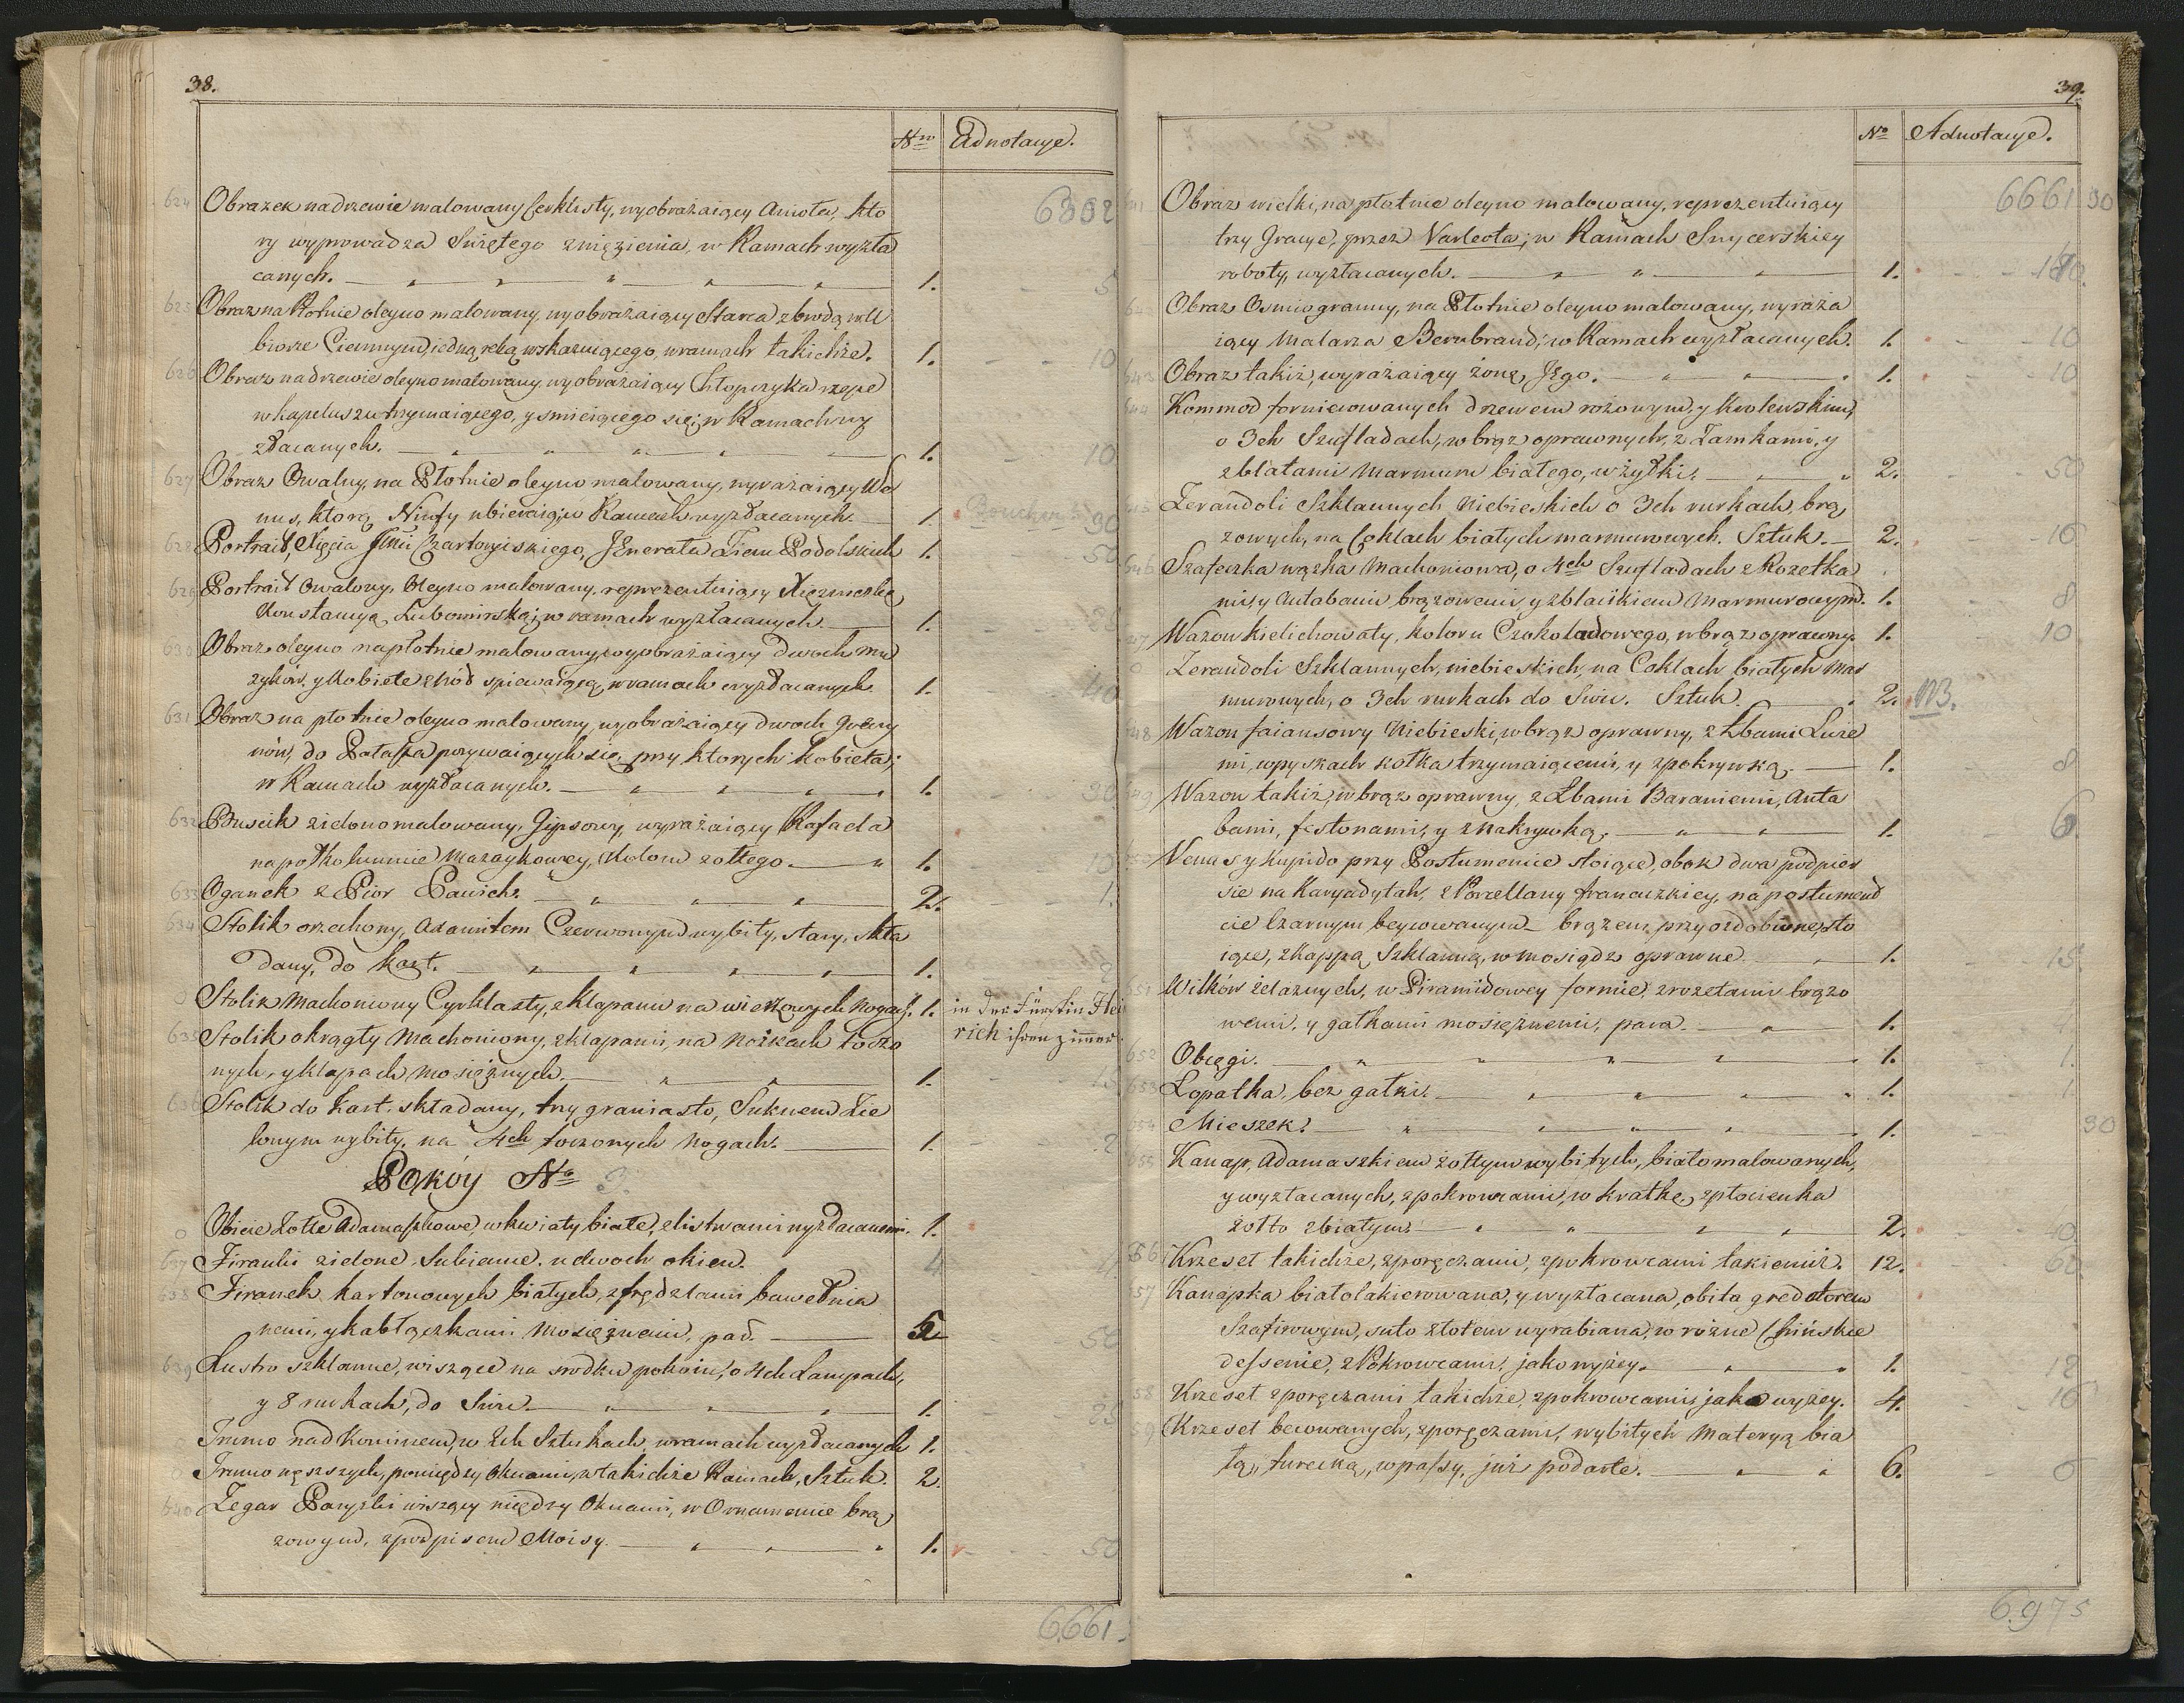 38.
Nro Adnotacye.
6302
624 Obrazek na drzewie malowany Cerklisty, wyobrażaiący Anioła, kto
ry wyprowadza Swiętego zwięzienia, w Ramach wyzła
canych. 1. 5
625 Obraz na Płotnie oleyno malowany, wyobrażaiący Starca z brodą w U
biorze Ciemnym, iedną ręką wskazuiącego, w ramach takichże. 1. 10
626 Obraz na drzewie oleyno malowany wyobrażaiący Chłopczyka rzepę
w kapeluszu trzymaiącego, y smieiącego się; w Ramach wy
złacanych. 1. 10
627 Obraz Owalny, na Płotnie oleyno malowany, wyrażaiący We
nus, ktorą Nimfy ubieraią; w Ramach wyzłacanych. 1. Boucher 30
628 Portrait, Xięcia Jmci Czartoryiskiego, JEnerała Ziem Podolskich 1. 50
629 Portrait Owalowy, Oleyno malowany, reprezentuiący Xiężniczkę
Konstancyą Lubomirską; w ramach wyzłacanych. 1.
630 Obraz oleyno na płotnie malowany, wyobrażaiący dwoch mu
zyków, y Kobietę z Nód spiewaiącą, w ramach wyzłacanych 1. 40
631 Obraz na płotnie oleyno malowany, wyobrażaiący dwoch Grecy
nów, do Pałasza porywaiących się, przy ktorych Kobieta;
w Ramach wyzłacanych. 1. 30
632 Buscik zielono malowany, Gipsowy, wyrażaiący Rafaela
na poł kolumnie Mazaykowey, Koloru zołtego. 1. 15
633 Oganek z Pior Pawich. 2. 1.
634 Stolik orzechowy, Axamitem Czerwonym wybity, stary, skła
dany, do kart. 1. 2
0 Stolik Machoniowy Cyrklasty, z klapami na wierzowych Nogach. 1. in der Fürstin Hei
rich ihren zimmer.
635 Stolik okrągły Machoniowy, z klapami, na Nożkach toczo
nych, y klapach mosiężnych. 1. 15
636 Stolik do Kart składany, try graniasto, Suknem Zie
lonym wybity, na 4ch toczonych Nogach. 1. 2
Pokóy No 3.
0 Obicie Zołte Adamaszkowe, w kwiaty białe, z listwami wyzłacanemi. 1.
637 Firanki zielone Kubiczne, u dwoch okien. 4
638 Firanek kartonowych białych, z frędzlami bawełnia
nemi, y kabłączkami Mosiężnemi, par. 50
639 Lustro szklanne, wiszące na srodku pokoiu, o 4ch Lampach,
y 8 rurkach, do Swic. 1. 25
Trumo nad Kominem, w 2ch Sztukach, w ramach wyzłacanych 1.
0 Trumo węższych, pomiędzy Oknami, w takichże Ramach, Sztuk. 2.
640 Zegar Paryzki wiszący między Oknami, w Ornamencie brą
zowym, z podpisem Moisy. 1. 50
6.661
39.
No Adnotacye.
6661 30
641 Obraz wielki, na płotnie oleyno malowany, reprezentuiący
trzy Gracye, przez Varleota; w Ramach Snycerskiey
roboty, wyzłacanych. 1.
642 Obraz Osmiogranny, na Płotnie oleyno malowany, wyraża
iący Malarza Bernbrand; w Ramach wyzłacanych. 1. 10
643 Obraz takiż, wyrażaiący żonę Jego. 1. 10
644 Kommod fornierowanych drzewem rożowym, y Krolewskim,
o 3ch Szufladach, w brąz oprawnych, z Zamkami, y
z blatami Marmuru białego, w żyłki. 2. 50
645 Zerandoli Szklannych Niebieskich o 3ch rurkach, brą
zowych, na Coklach białych marmurowych. Sztuk. 2. 16
646 Szafeczka wązka Machoniowa, o 4ch Szufladach z Rozetka
mi, y Antabami brązowemi y z blacikiem Marmurowym. 1. 8
647 Wazon kielichowaty, koloru Czokoladowego, w brąz oprawny. 1. 10
0 Zerandoli Szklannych, niebieskich, na Coklach białych Mar
murowych, o 3ch rurkach do Swic. Sztuk. 2. NB.
648 Wazon faiansowy Niebieski, w brąz oprawny, z Łbami Lwie
mi, w pyskach kołka trzymaiącemi, y z pokrywką. 1. 8
649 Wazon takiż, w brąz oprawny, z Łbami Baraniemi, Anta
bami, festonami, y z Nakrywką. 1. 6
650 Venus y Kupido przy Postumencie stoiące, obok dwa podpier
sie na Karyadytah, z Porcellany francuzkiey, na postumend
cie Czarnym beycowanym brązem przyozdobione, sto
iące, z Kappą Szklanną, w mosiądz oprawne. 1. 15
651 Wilków żelaznych, w Piramidowey formie, z rozetami brązo
wemi, y gałkami mosiężnemi, para. 1.
652 Obcęgi. 1. 1.
653 Łopatka, bez gałki. 1. 1
654 Mieszek. 1. 30
655 Kanap, Adamaszkiem żołtym wybitych, biało malowanych,
y wyzłacanych, z pokrowcami, w kratkę, z płocienka
żołto z białym. 2. 40
656 Krzeseł takichże, z poręczami, z pokrowcami takiemiż. 12. 60
657 Kanapka biało lakierowana, y wyzłacana, obita gredotorem
Szafirowym, suto złotem wyrabiana, w rożne Chińskie
dessenie, z Pokrowcami, jako wyżey. 1. 12
658 Krzeseł z poręczami takichże, z pokrowcami, jako wyżey. 4. 16
659 Krzeseł becowanych, z poręczami, wybitych Materyą bia
łą, turecką, w passy, już podarte. 6. 6
6.975